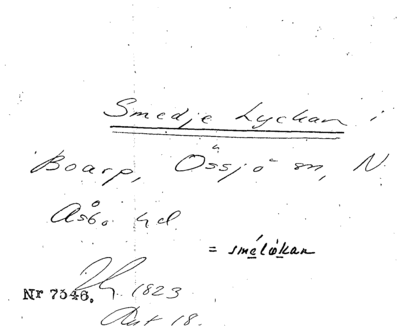 Smedje Lyckan i
Boarp, Össjö sn, N.
Åsb. hd
= smélǿkan
Nr 7546. 1823
Akt 18.